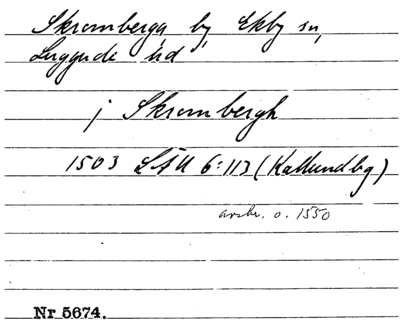 Skromberga by, Ekby sn,
Luggude hd
j Skrombergh
1503 LÄU 6:113 (Kallundbg)
avskr. o. 1550
Nr 5674.